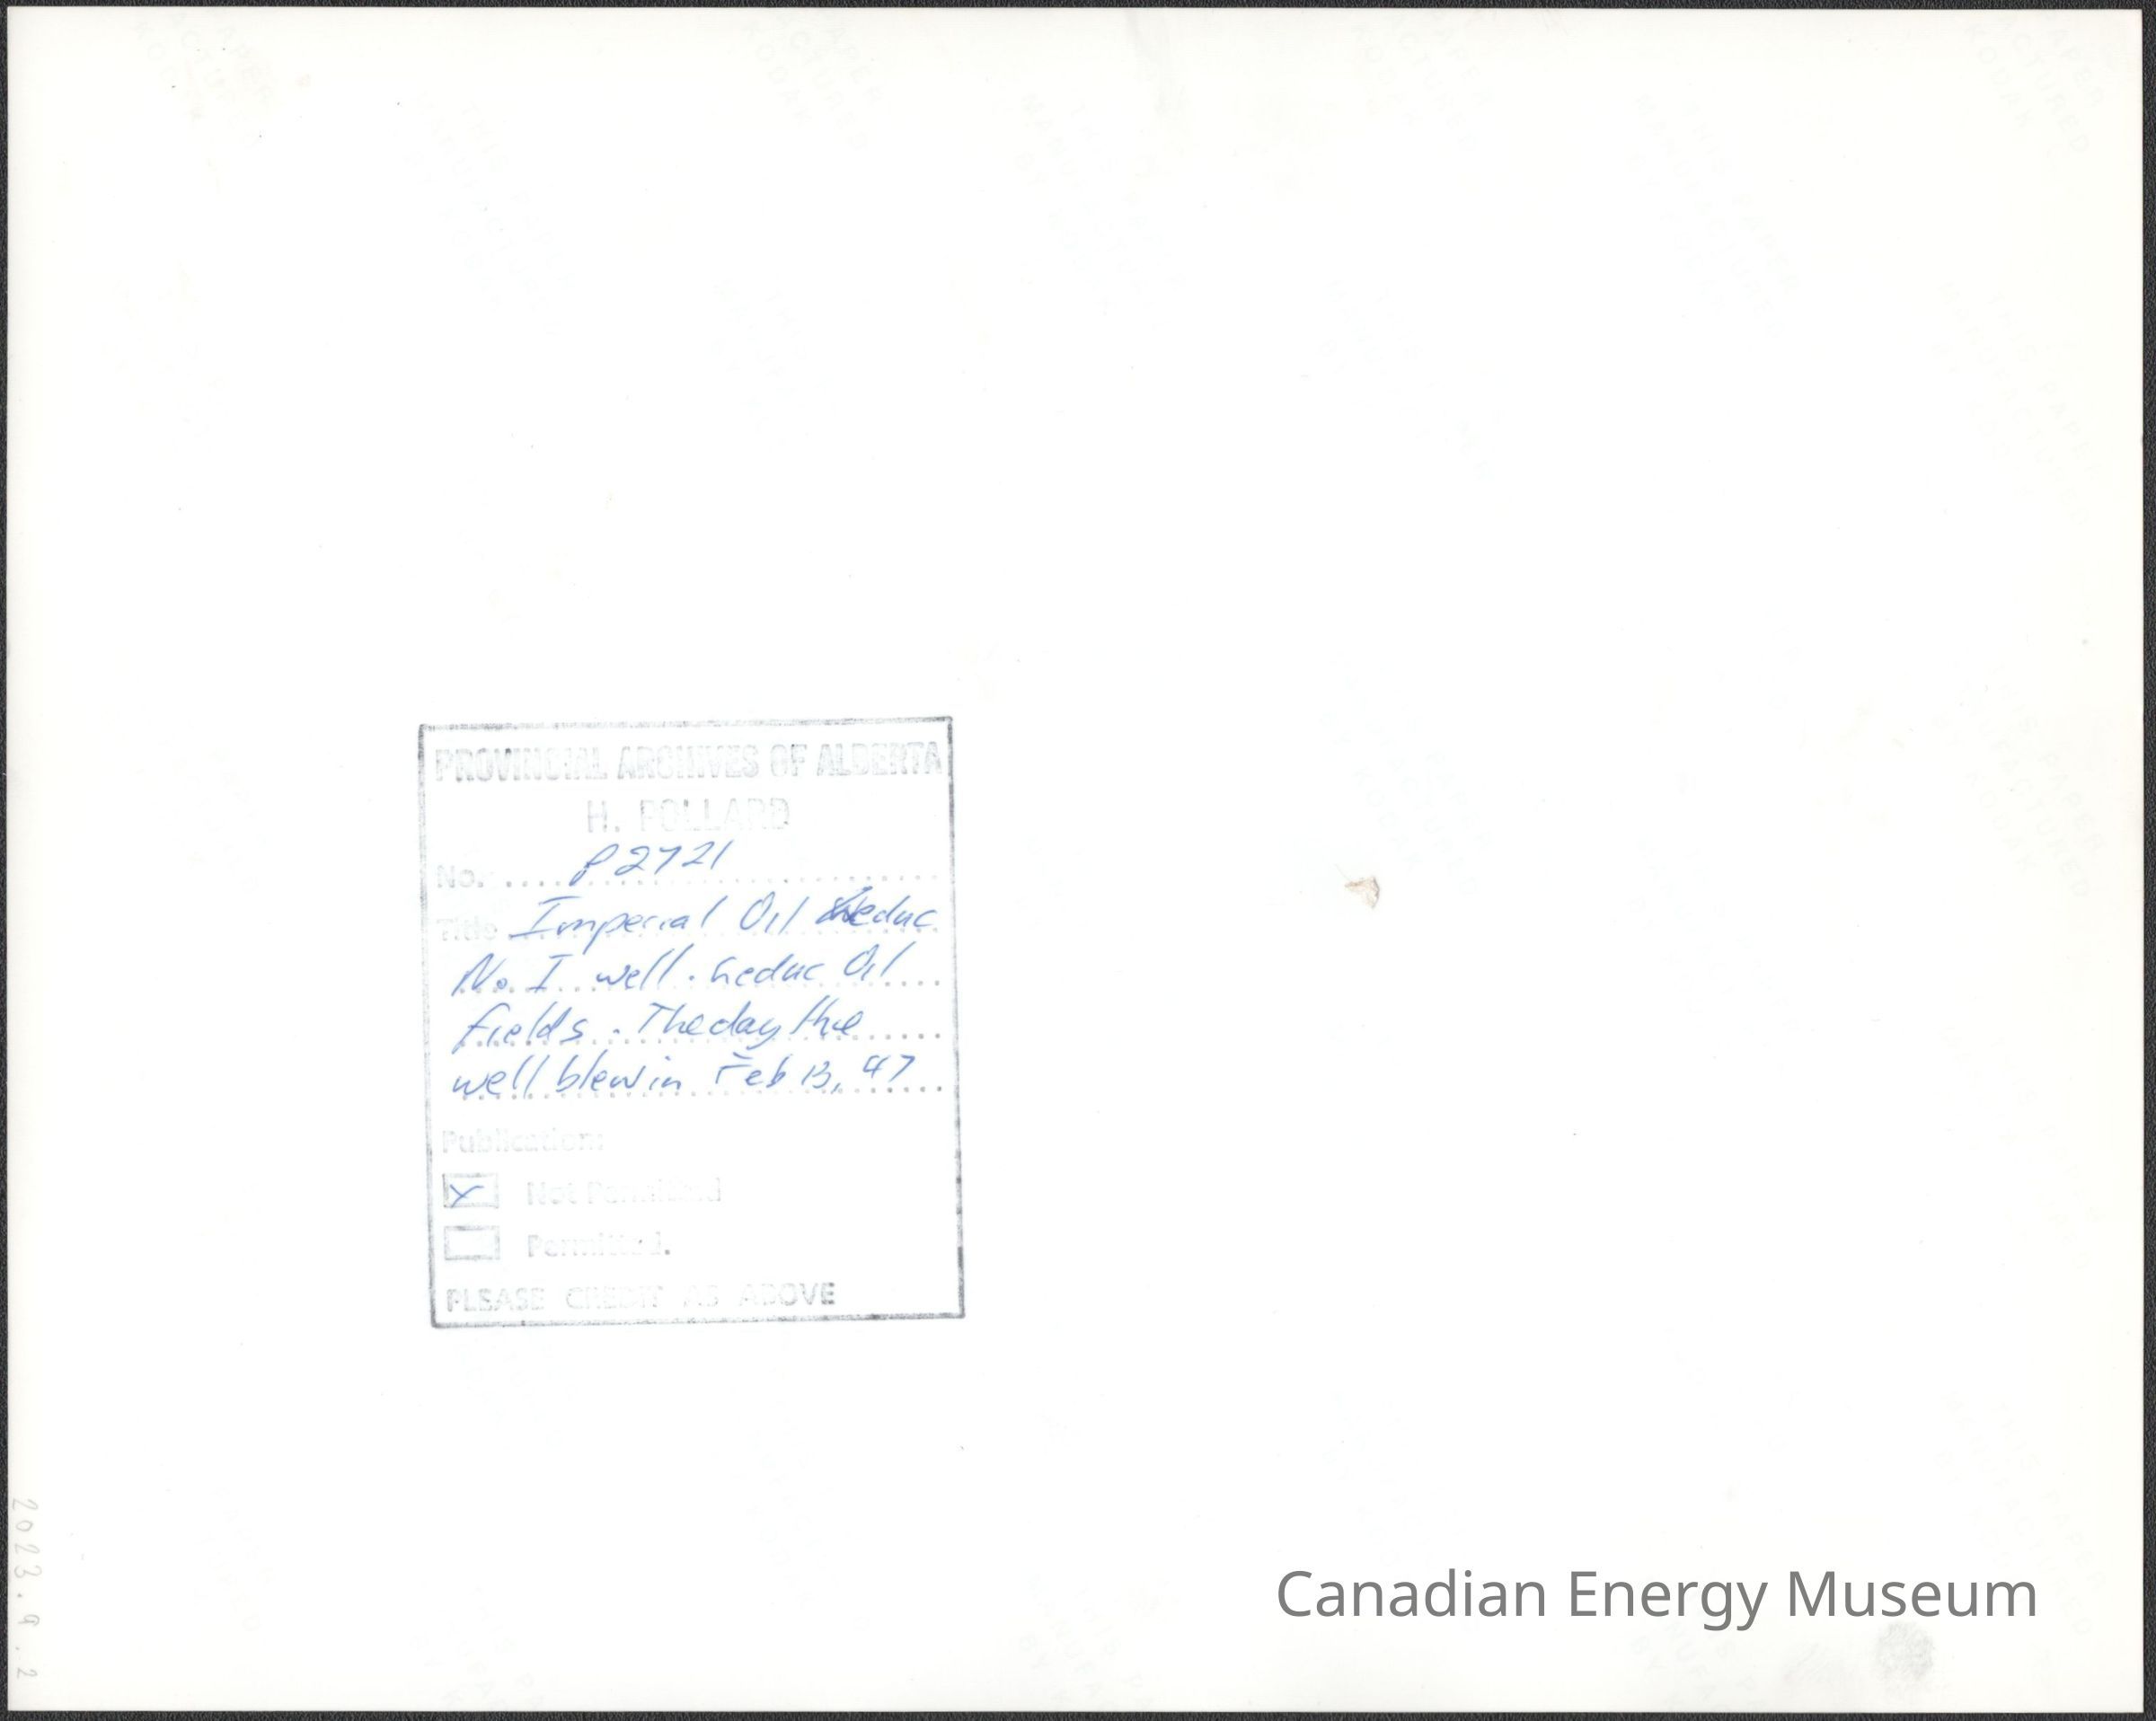 PROVINCIAL ARCHIVES OF ALBERTA
H. POLLARD
No. P2721
Title Imperial Oil Leduc
No. I well. Leduc Oil
fields. The day the
well blew in Feb 13, 47
Publication:
X Not Permitted
Permitted.
PLEASE CREDIT AS ABOVE
2023.9.2
Canadian Energy Museum